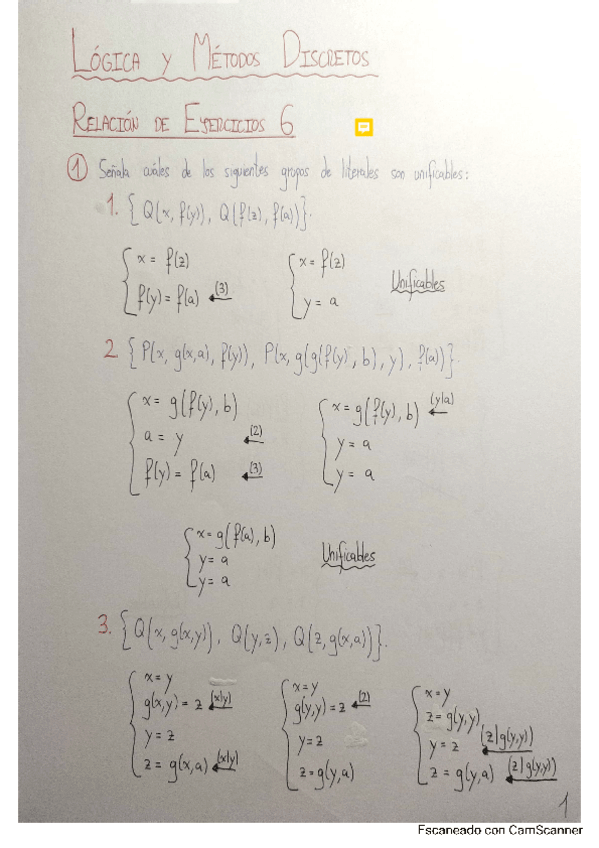 LÓGICA Y MÉTODOS DISCRETOS
RELACIÓN DE EJERCICIOS 6
① Señala cuáles de los siguientes grupos de literales son unificables:
1. {Q(x, f(y)), Q(f(z), f(a))}.
x = f(z)
f(y) = f(a) ← (3)
x = f(z)
y = a
Unificables
2. {P(x, g(x,a), f(y)), P(x, g(g(f(y), b), y), f(a))}.
x = g(f(y), b)
a = y ← (2)
f(y) = f(a) ← (3)
x = g(f(y), b) ← (y|a)
y = a
y = a
x = g(f(a), b)
y = a
y = a
Unificables
3. {Q(x, g(x,y)), Q(y,z), Q(z, g(x,a))}.
x = y
g(x,y) = z ← (x|y)
y = z
z = g(x,a) ← (x|y)
x = y
g(y,y) = z ← (2)
y = z
z = g(y,a)
x = y
z = g(y,y)
y = z ← (z|g(y,y))
z = g(y,a) ← (z|g(y,y))
1
Escaneado con CamScanner